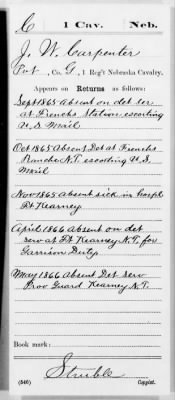 C 1 Cav. Neb.
J. W. Carpenter
Pvt, Co. G, 1 Reg't Nebraska Cavalry.
Appears on Returns as follows:
Sept 1865 absent on det ser
at Frenchs Station escorting
U.S Mail
Oct 1865 Absent Det at Frenchs
Ranche N.T. escorting U.S.
Mail
Nov 1865 absent sick in Hospl
Ft Kearney
April 1866 absent on det
serv at Ft Kearney N.T. for
Garrison Duty
May 1866 absent Det serv
Prov Guard Kearney N.T.
Book mark:
Struble
(546) Copyist.